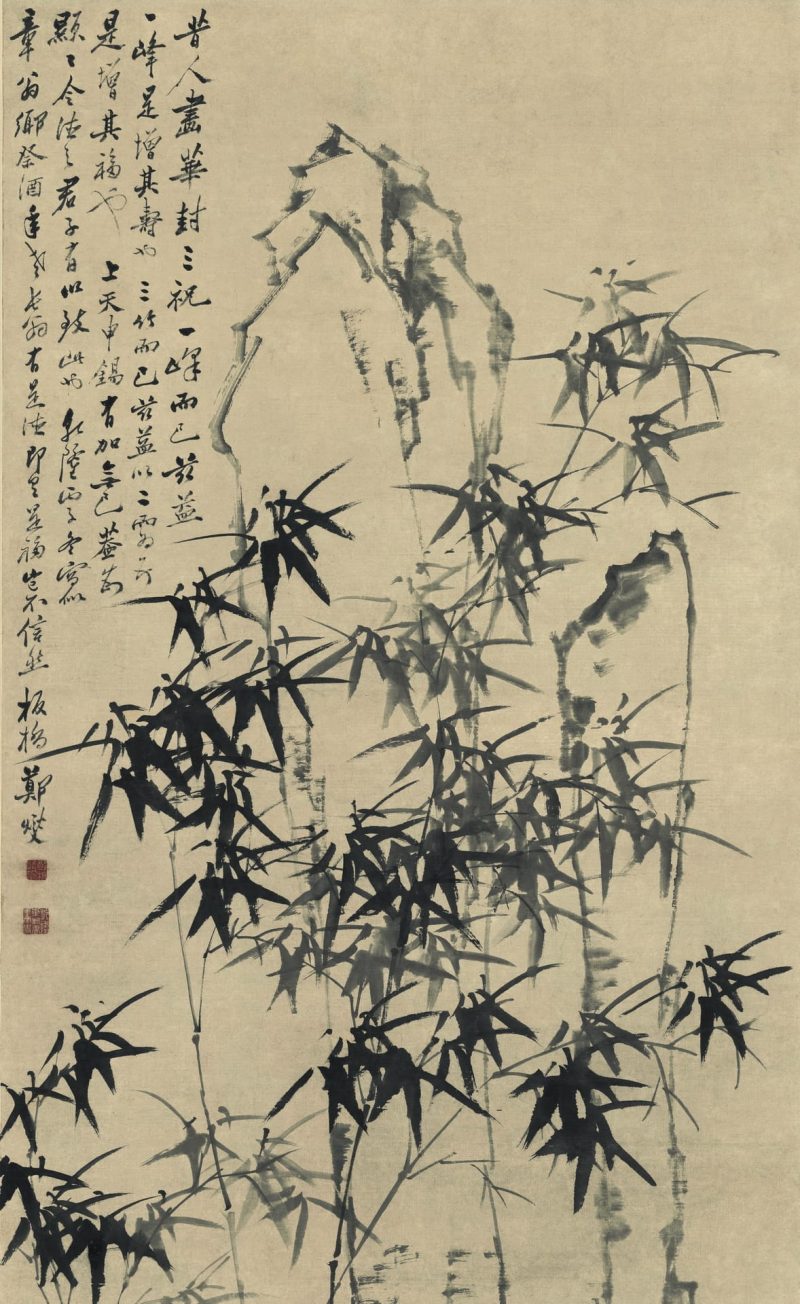 昔人畫華封三祝一峰而已茲益
一峰是增其壽也三竹而已茲益以二
是增其福也上天申錫有加無已蓋
顯〻令德之君子有以致此也乾隆丙子冬寫似
章翁鄉祭酒年老長翁有是德即具是福豈不信然板橋鄭燮